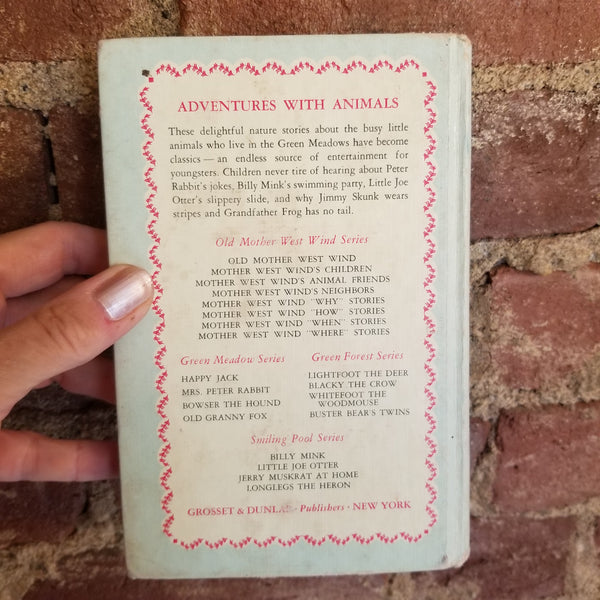 ADVENTURES WITH ANIMALS
These delightful nature stories about the busy little
animals who live in the Green Meadows have become
classics — an endless source of entertainment for
youngsters. Children never tire of hearing about Peter
Rabbit's jokes, Billy Mink's swimming party, Little Joe
Otter's slippery slide, and why Jimmy Skunk wears
stripes and Grandfather Frog has no tail.
Old Mother West Wind Series
OLD MOTHER WEST WIND
MOTHER WEST WIND'S CHILDREN
MOTHER WEST WIND'S ANIMAL FRIENDS
MOTHER WEST WIND'S NEIGHBORS
MOTHER WEST WIND "WHY" STORIES
MOTHER WEST WIND "HOW" STORIES
MOTHER WEST WIND "WHEN" STORIES
MOTHER WEST WIND "WHERE" STORIES
Green Meadow Series
HAPPY JACK
MRS. PETER RABBIT
BOWSER THE HOUND
OLD GRANNY FOX
Green Forest Series
LIGHTFOOT THE DEER
BLACKY THE CROW
WHITEFOOT THE
WOODMOUSE
BUSTER BEAR'S TWINS
Smiling Pool Series
BILLY MINK
LITTLE JOE OTTER
JERRY MUSKRAT AT HOME
LONGLEGS THE HERON
GROSSET & DUNLAP · Publishers · NEW YORK